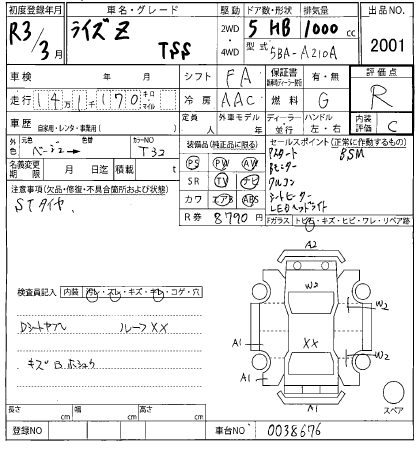 初度登録年月 車名・グレード 駆動 ドア数・形状 排気量 出品NO.
R3/3月 ライズ Z TSS 2WD・4WD 5 HB 1000 cc
型式 5BA-A210A 2001
車検 年 月 シフト FA 保証書 有・無 評価点
走行 14万1千170 キロ マイル 冷房 AAC 燃料 G R
車歴 自家用・レンタ・事業用( ) 定員 人 外車モデル 年 ディーラー・並行 ハンドル 左・右 内装評価 C
外色 元色 ベージュ→ カラーNO T32
装備品(純正品に限る) セールスポイント(正常に作動するもの)
名義変更期限 月 日迄 積載 t
PS PW AW
SR TV ナビ
カワ エアB ABS
R券 8790円
Pスタート BSM
Bモニター
アルコン
シートヒーター
LEDヘッドライト
Fガラス トビ石・キズ・ヒビ・ワレ・リペア跡
注意事項(欠品・修復・不具合箇所および状態)
STタイヤ.
検査員記入 内装 汚レ・スレ・キズ・キレ・コゲ・穴
Dシートヤブレ ルーフXX
キズ B.ホシュウ
A2
W2
W2
XX
W2
A1
A1
A1
スペア
長さ cm 幅 cm 高さ cm
登録NO 車台NO 0038676